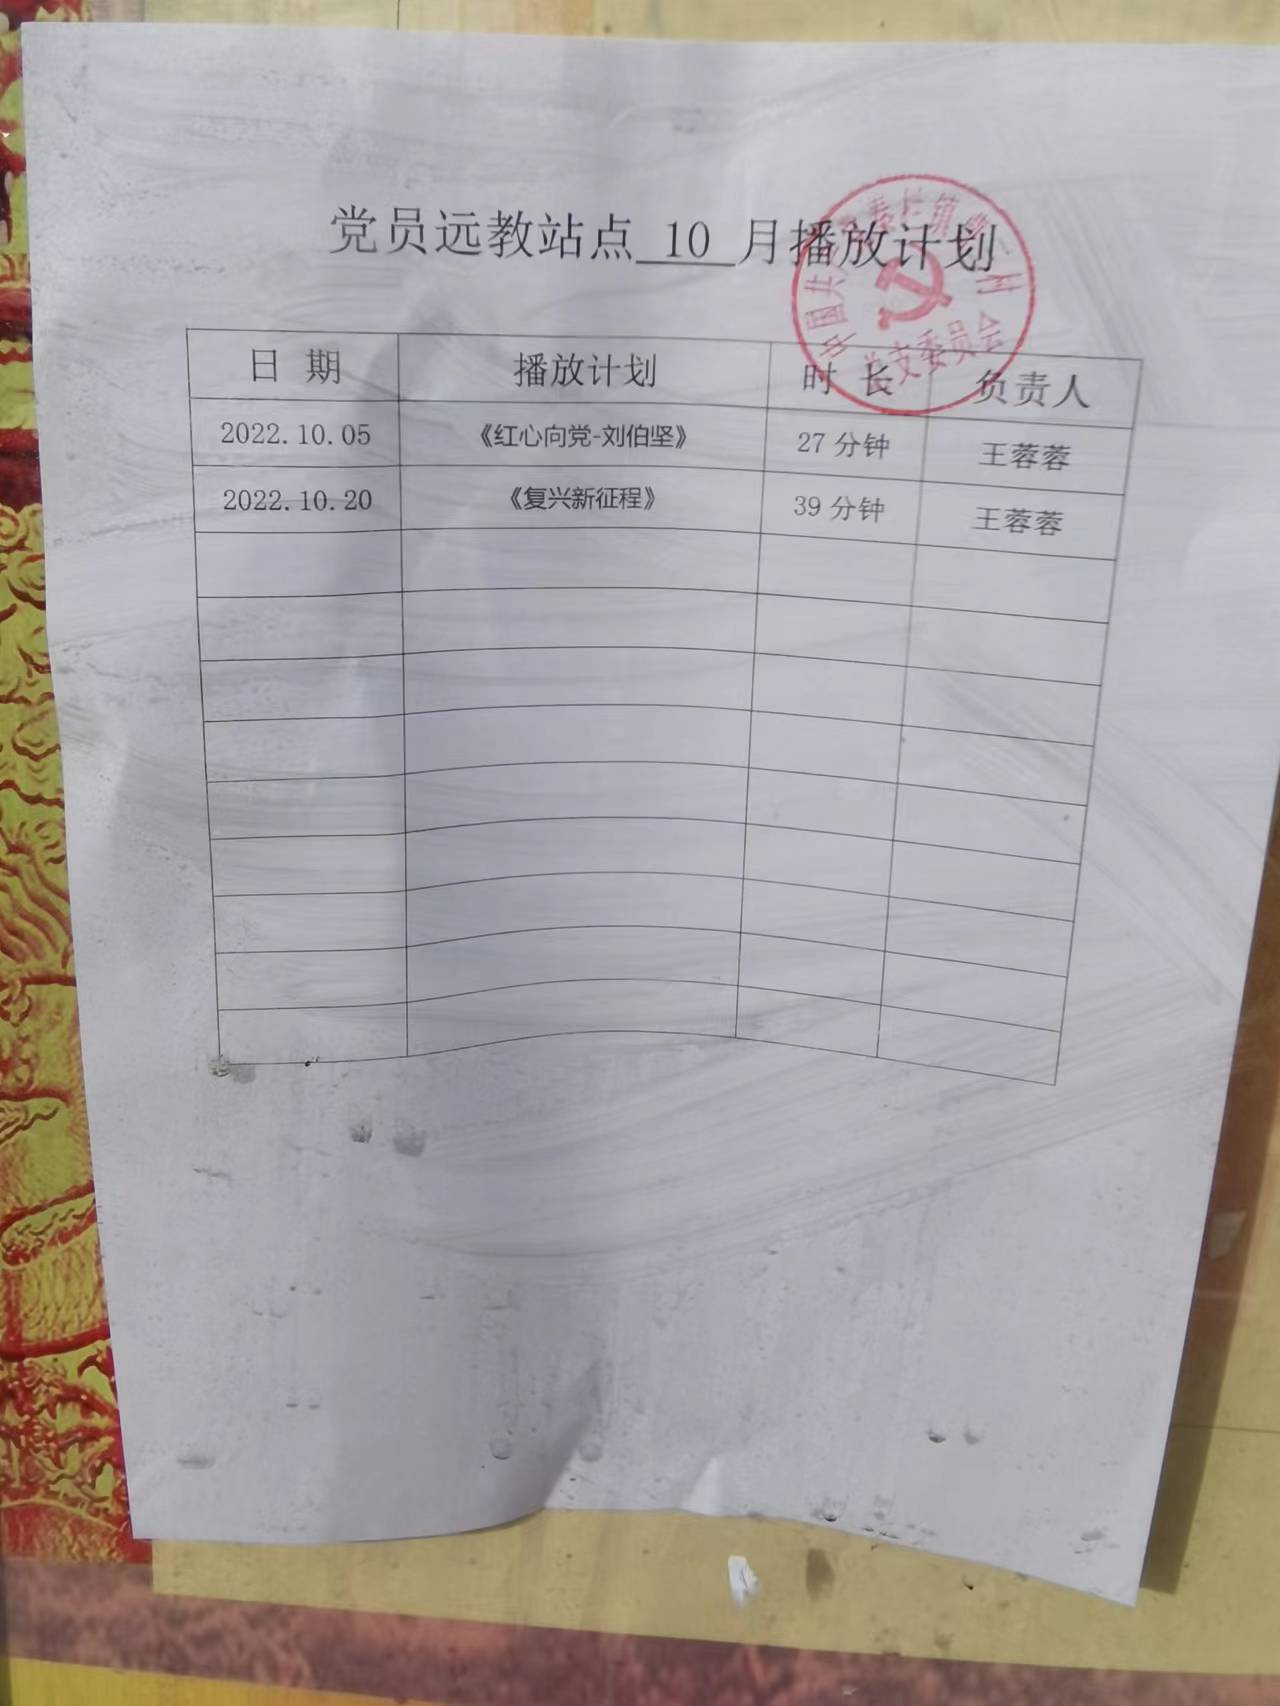 党员远教站点 10 月播放计划
日 期 播放计划 时 长 负责人
2022.10.05 《红心向党-刘伯坚》 27 分钟 王蓉蓉
2022.10.20 《复兴新征程》 39 分钟 王蓉蓉
中国共
镇
村
党支委员会